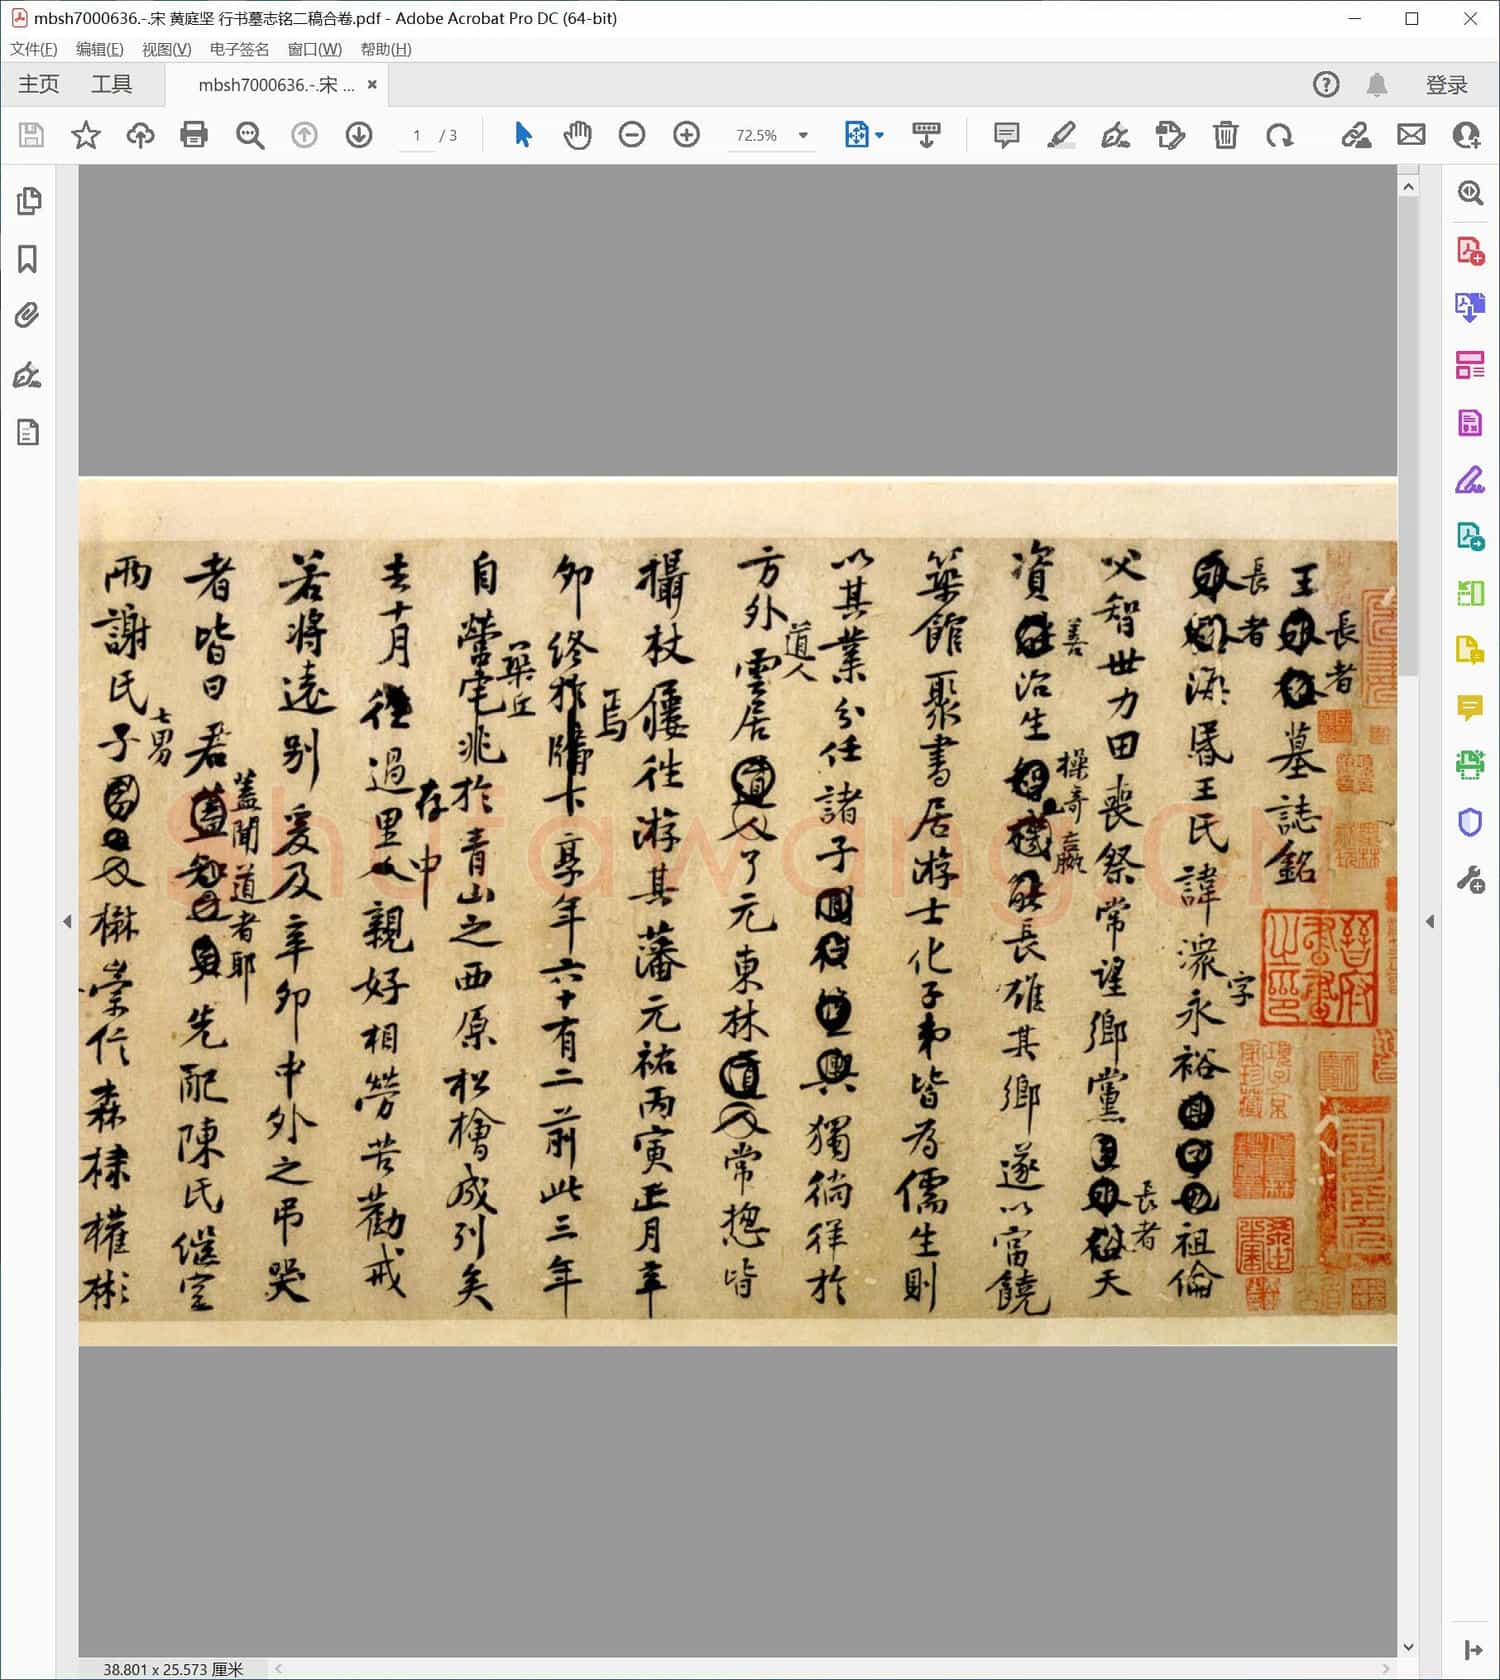 mbsh7000636.-.宋 黄庭坚 行书墓志铭二稿合卷.pdf - Adobe Acrobat Pro DC (64-bit)
文件(F) 编辑(E) 视图(V) 电子签名 窗口(W) 帮助(H)
主页 工具 mbsh7000636.-.宋 ... × 登录
1 / 3 72.5%
長者
王墓誌銘
長者 字
海昬王氏諱潨永裕祖倫
長者
父智世力田喪祭常望鄉黨天
善 操奇贏
資治生能長雄其鄉遂以富饒
築館聚書居游士化子弟皆為儒生則
以其業分任諸子獨徜徉於
道人
方外雲居了元東林常揔皆
攝杖屨往游其藩元祐丙寅正月辛
焉
卯終於牖下享年六十有二前此三年
築丘
自營宅兆於青山之西原松檜成列矣
存 中
去十月過里親好相勞苦勸戒
若將遠別爰及辛卯中外之弔哭
蓋聞道者耶
者皆曰君先配陳氏繼室
七男
兩謝氏子楙崇仁森棣權彬
晉府書畫之印
Shufawang.CN
38.801 x 25.573 厘米